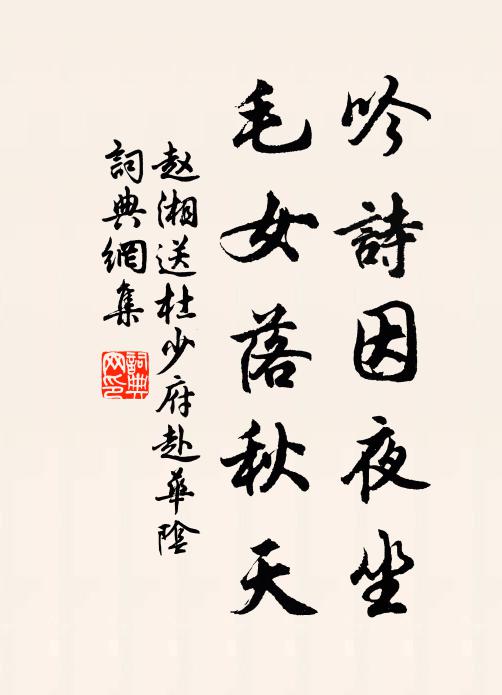 吟詩因夜坐
毛女落秋天
赵湘送杜少府赴華陰
詞典網集
詞典网印